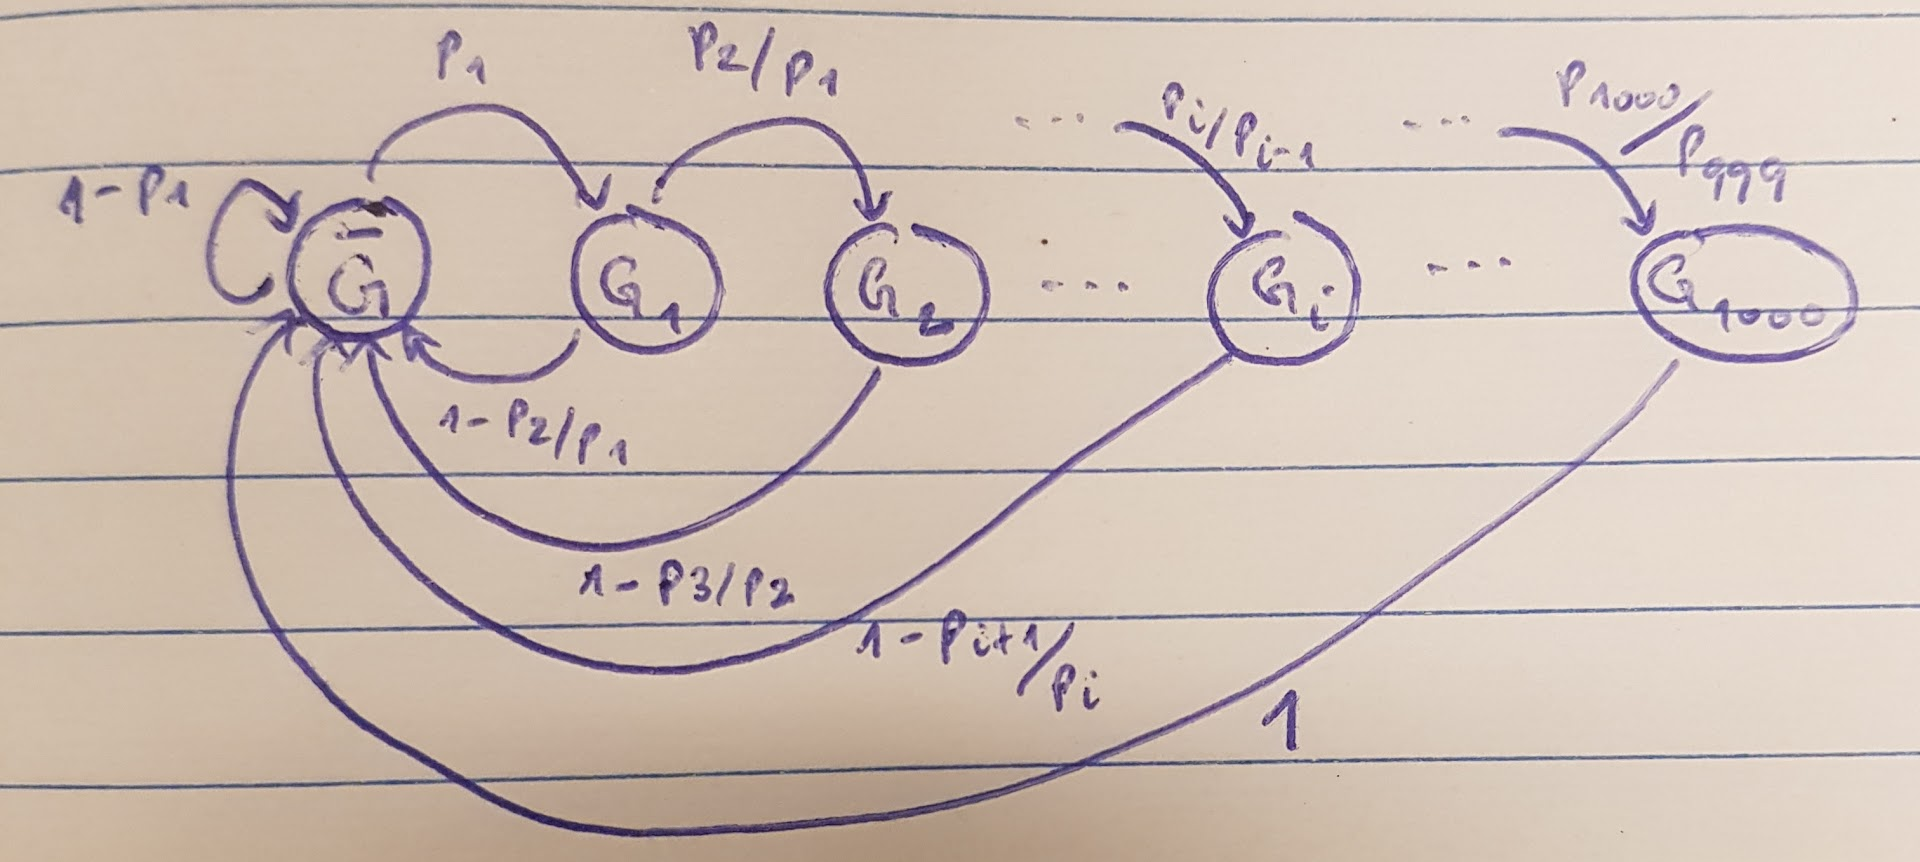 P1
P2/P1
... Pi/Pi-1
... P1000/P999
1-P1
G̅
G1
G2
...
Gi
...
G1000
1-P2/P1
1-P3/P2
1-Pi+1/Pi
1